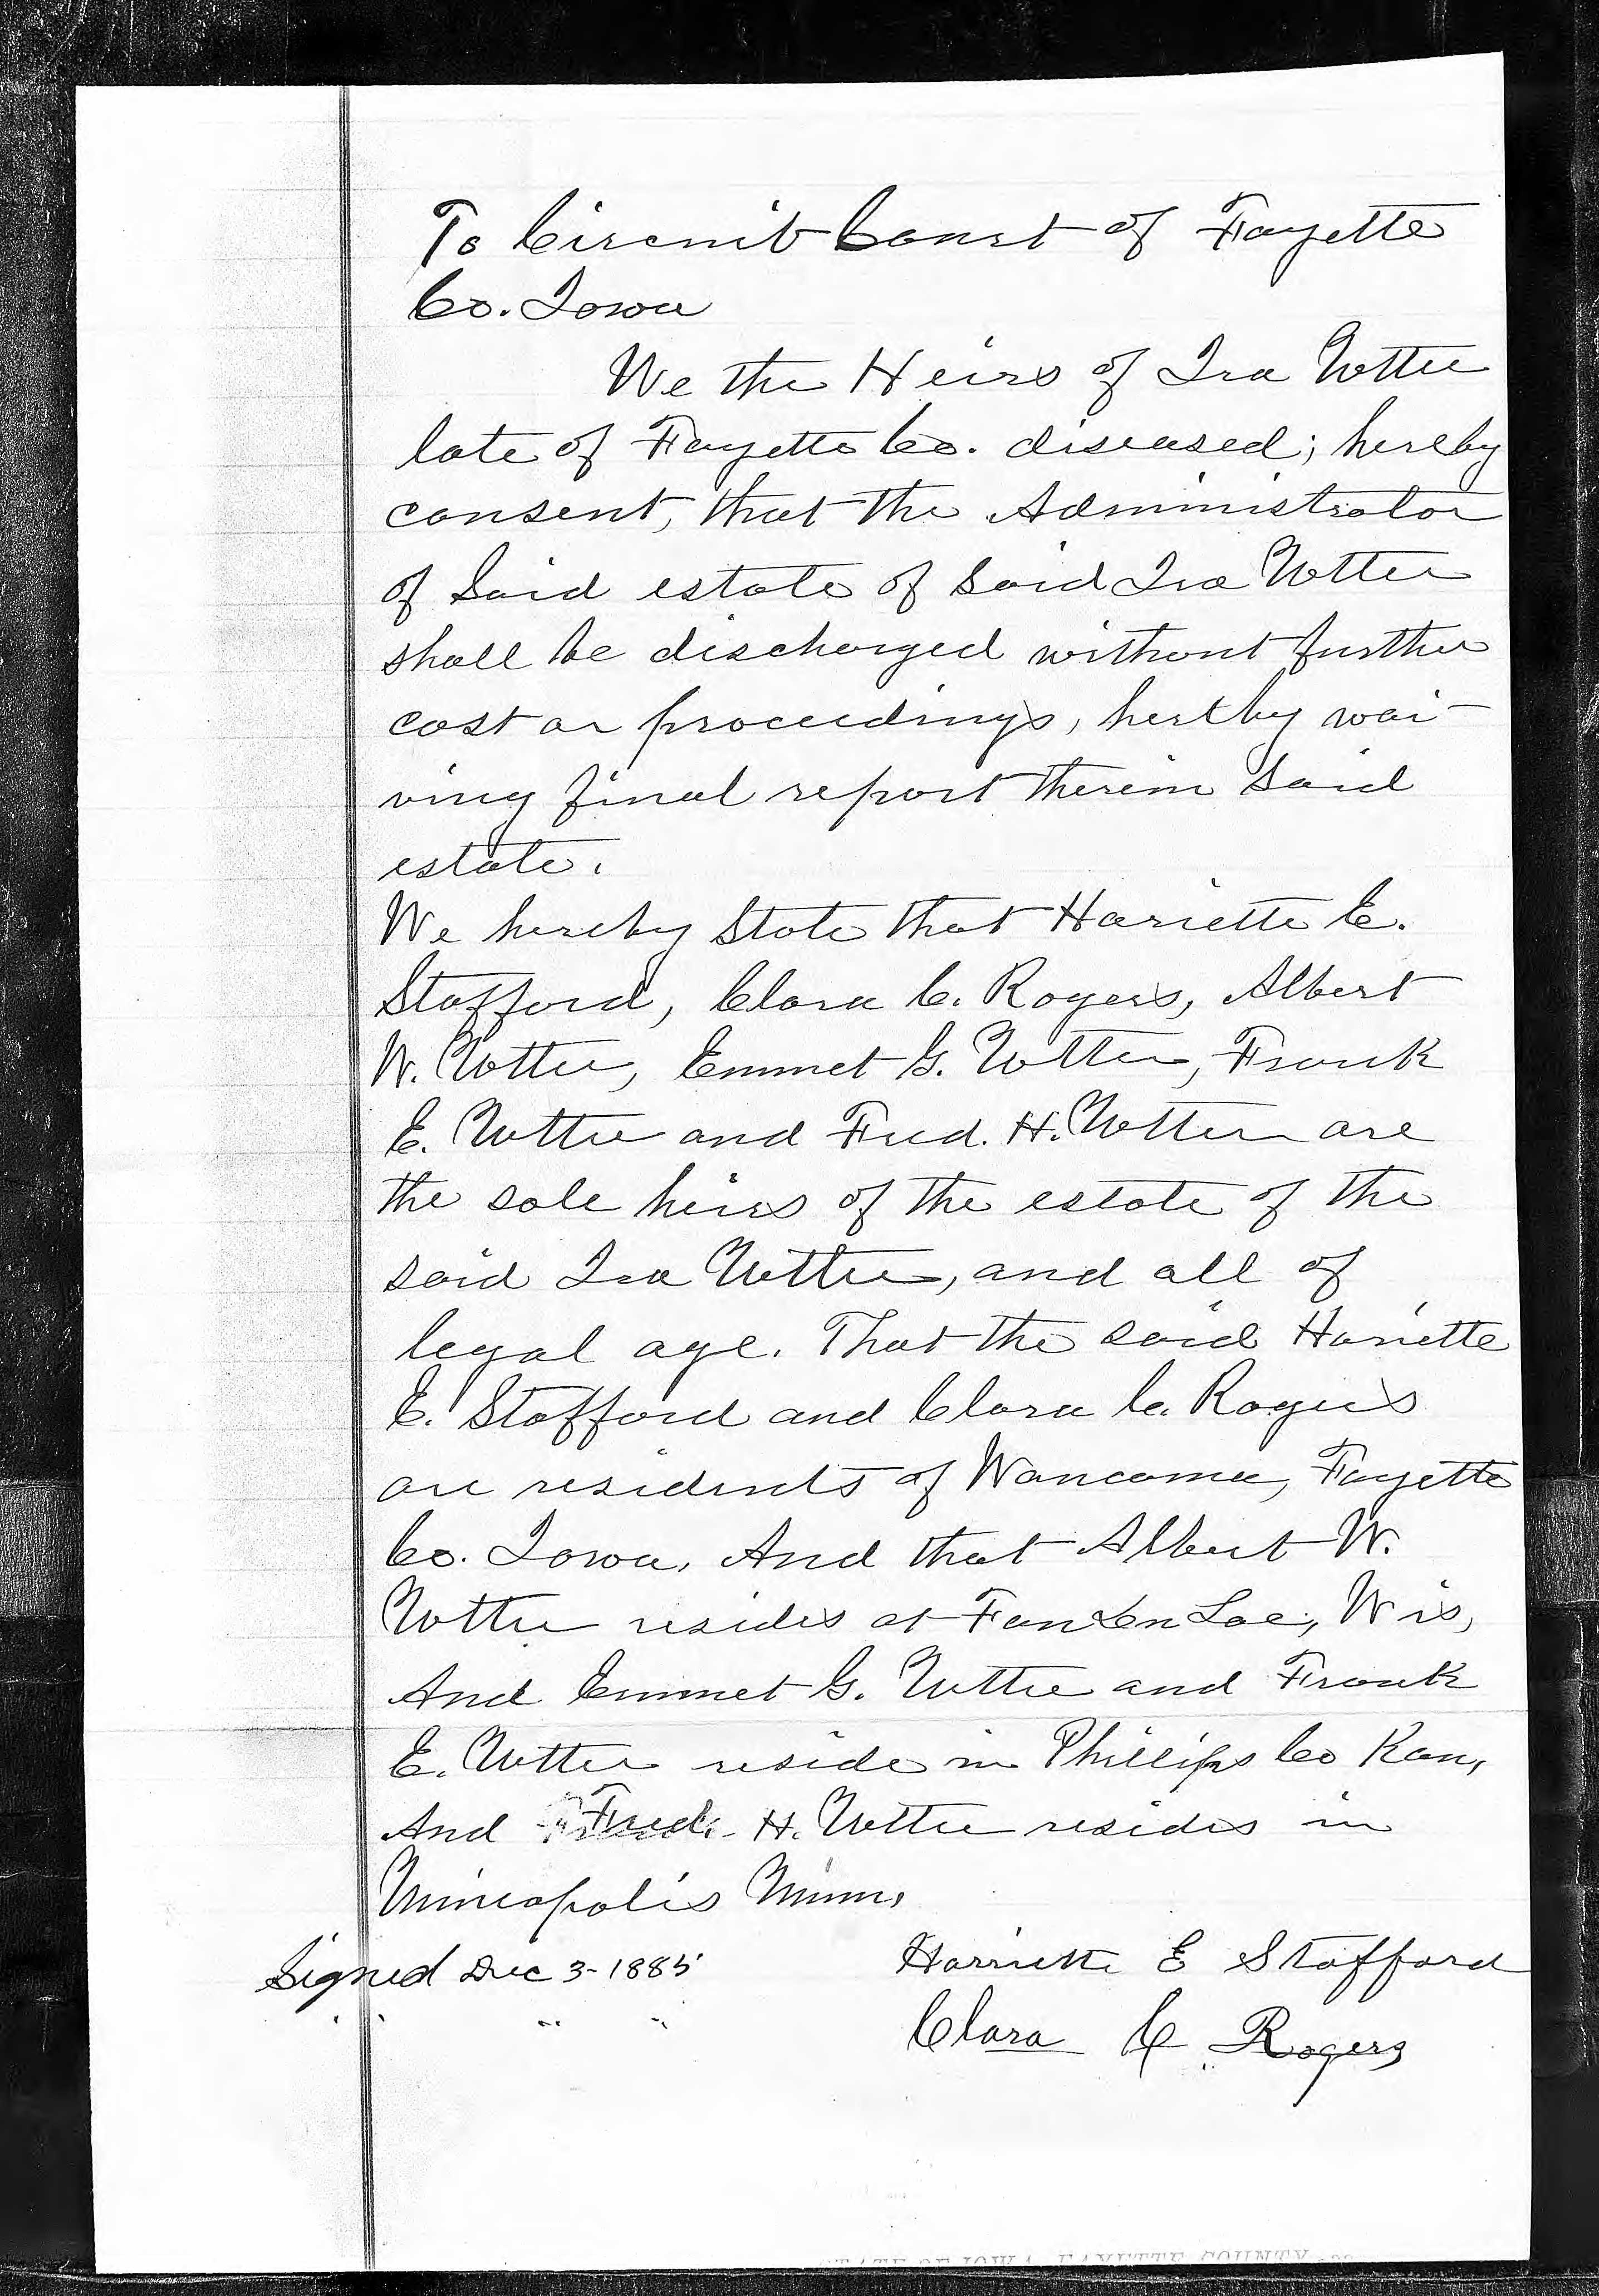 To Circuit Court of Fayette
Co. Iowa
We the Heirs of Ira Nutter
late of Fayette Co. diseased; hereby
consent, that the Administrator
of Said estate of Said Ira Nutter
shall be discharged without further
cost or proceedings, hereby wai-
ving final report therein Said
estate.
We hereby State that Hariette E.
Stafford, Clara C. Rogers, Albert
W. Nutter, Emmet G. Nutter, Frank
E. Nutter and Fred. H. Nutter are
the sole heirs of the estate of the
said Ira Nutter, and all of
legal age. That the said Hariette
E. Stafford and Clara C. Rogers
are residents of Waucoma, Fayette
Co. Iowa, And that Albert W.
Nutter resides at Fon Den Lac, Wis,
And Emmet G. Nutter and Frank
E. Nutter reside in Phillips Co Kan,
And Fred. H. Nutter resides in
Mineapolis Minn,
Signed Dec 3-1885 Harriette E Stafford
" " " " Clara C Rogers
STATE OF IOWA, FAYETTE COUNTY